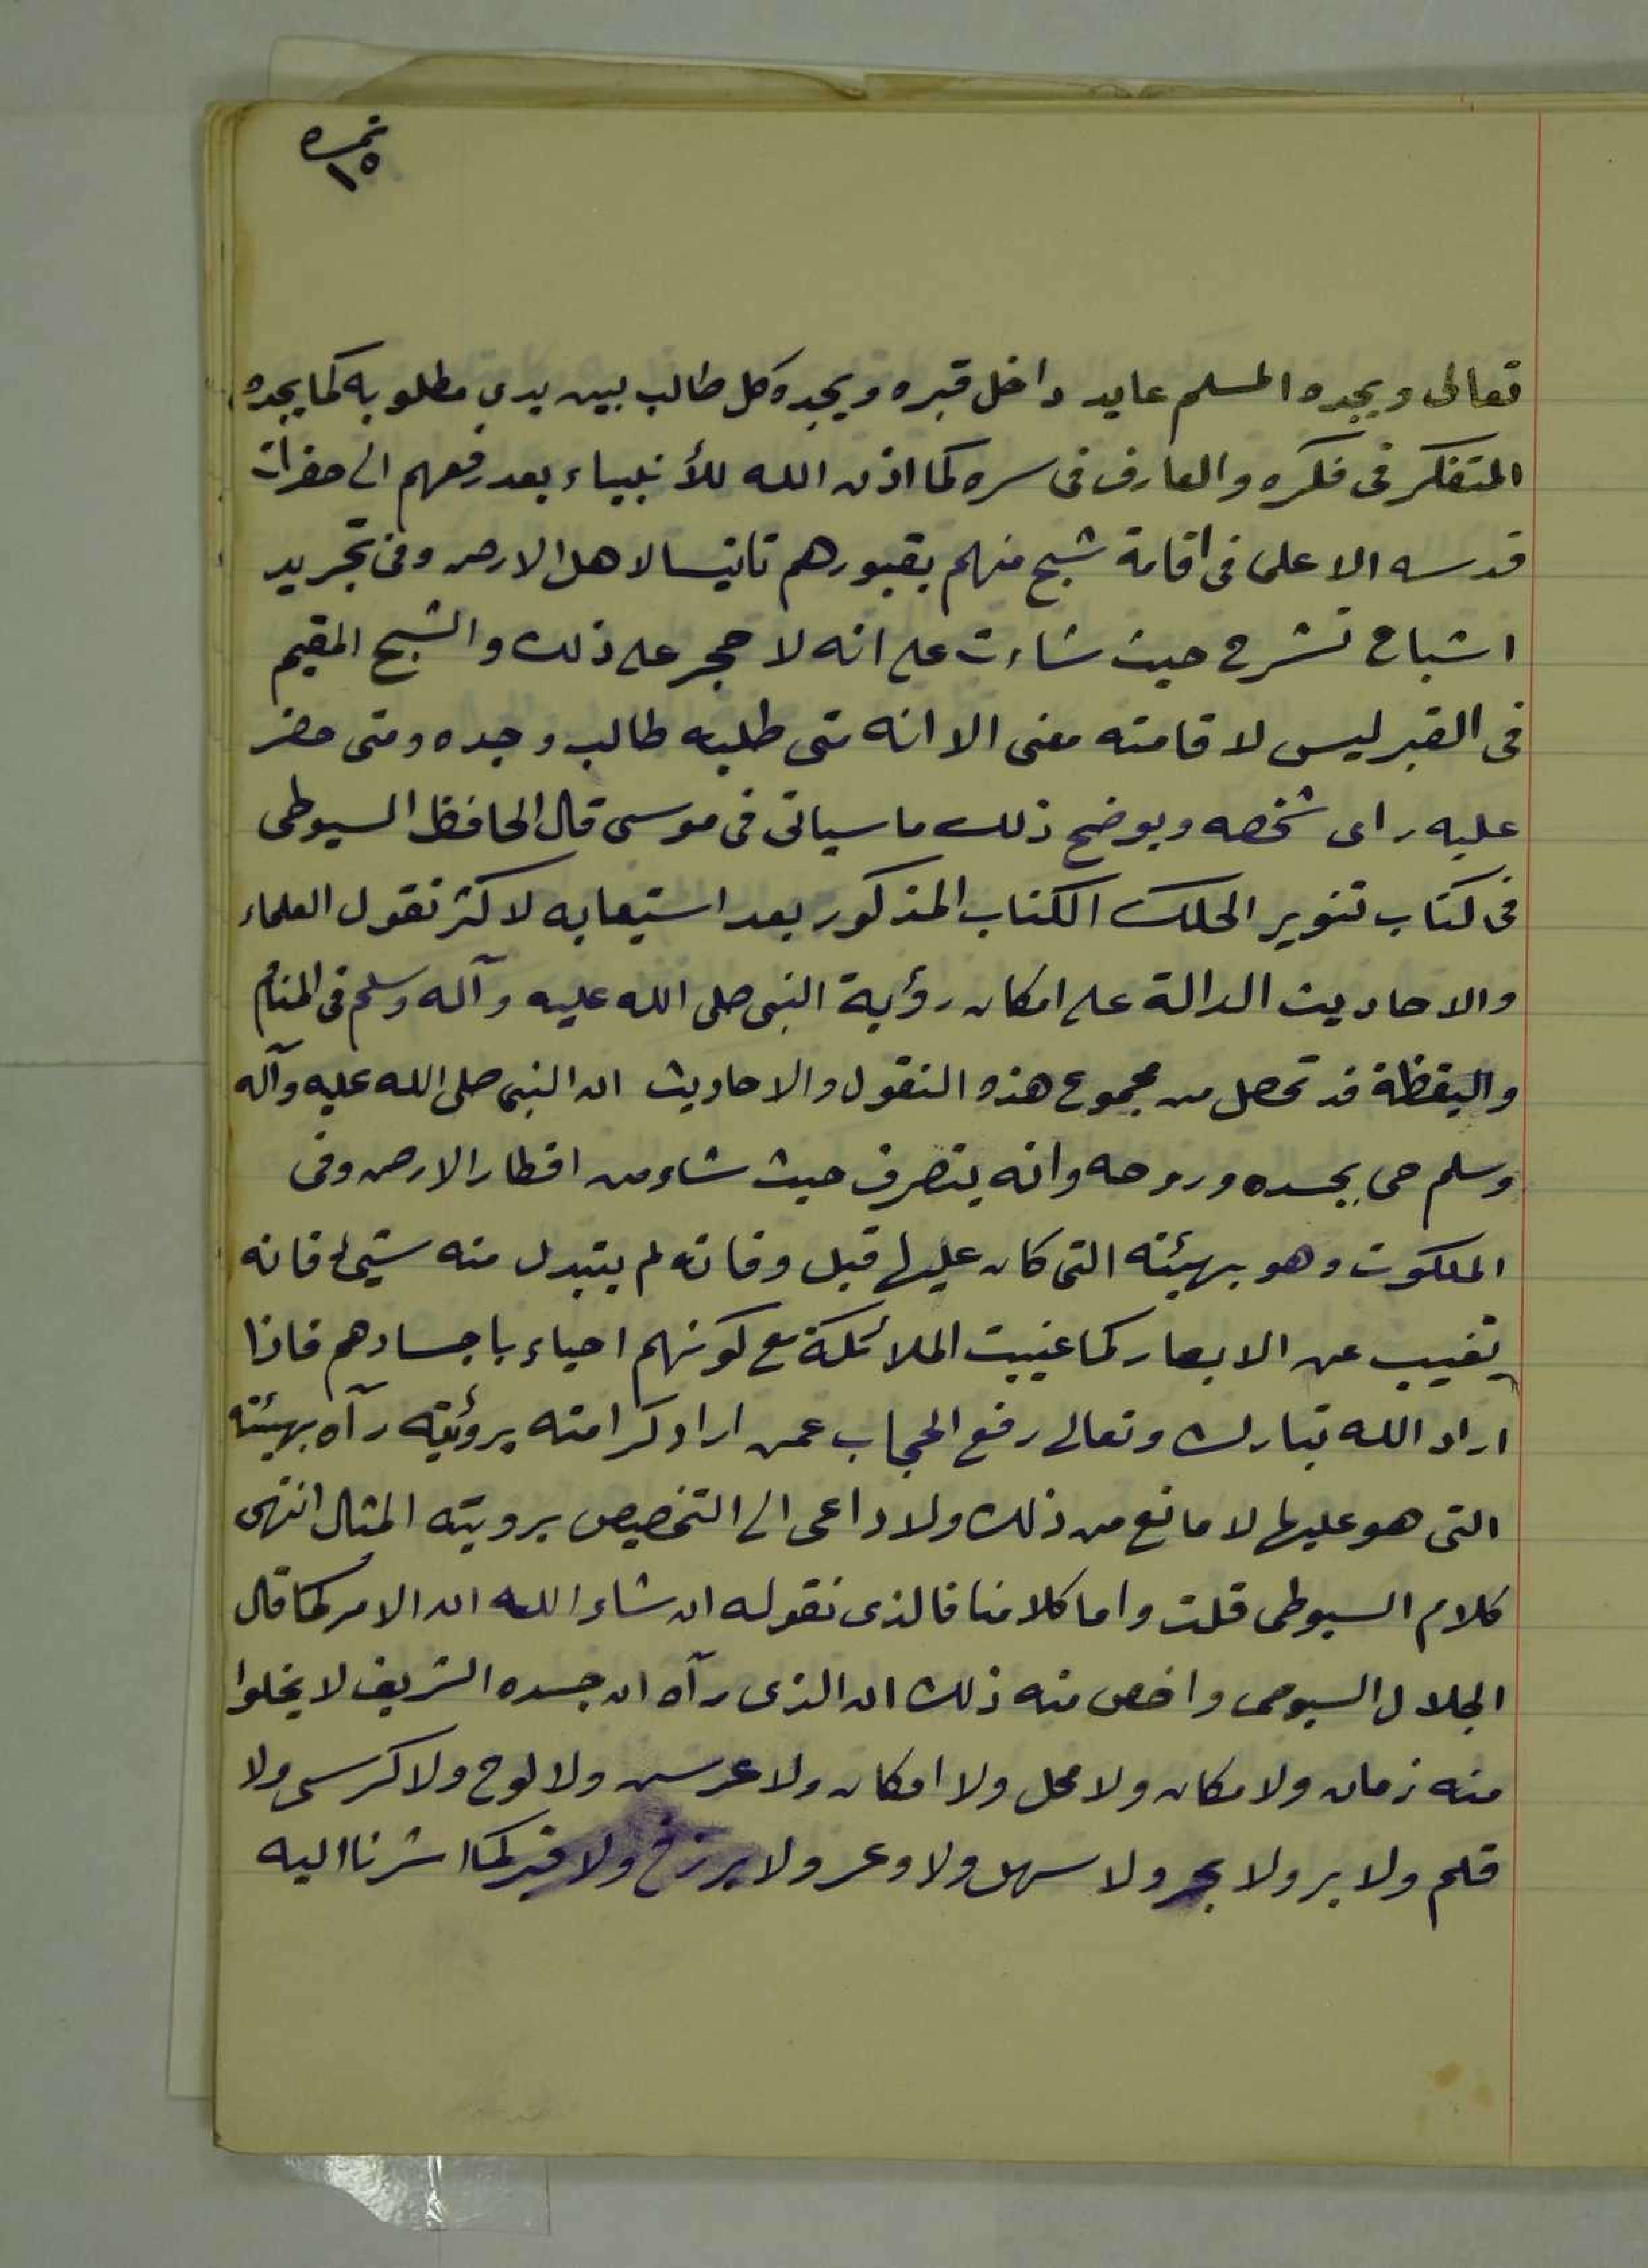 نمرة
١٥
تعالى ويجده المسلم عليه داخل قبره ويجده كل طالب بين يدي مطلوبه كما يجده
المتفكر في فكره والعارف في سره كما اذن الله للأنبياء بعد رفعهم الى حضرات
قدسه الاعلى في اقامة شبح منهم بقبورهم تانيسا لاهل الارض وفى تجريد
اشباح تسرح حيث شاءت على انه لا حجر على ذلك والشبح المقيم
فى القبر ليس لاقامته معنى الا انه متى طلبه طالب وجده ومتى حضر
عليه راى شخصه ويوضح ذلك ما سياتى فى موسى قال الحافظ السيوطى
فى كتاب تنوير الحلك الكتاب المذكور بعد استيعابه لاكثر نقول العلماء
والاحاديث الدالة على امكان رؤية النبى صلى الله عليه وآله وسلم فى المنام
واليقظة قد تحصل من مجموع هذه النقول والاحاديث ان النبى صلى الله عليه وآله
وسلم حى بجسده وروحه وانه يتصرف حيث شاء من اقطار الارض وفى
الملكوت وهو بهيئته التى كان عليها قبل وفاته لم يتبدل منه شيئ فانه
يغيب عن الابصار كما غيبت الملائكة مع كونهم احياء باجسادهم فاذا
اراد الله تبارك وتعالى رفع الحجاب عمن اراد كرامته برؤيته رآه بهيئته
التى هو عليها لا مانع من ذلك ولا داعى الى التخصيص برويته المثال انتهى
كلام السيوطى قلت واما كلامنا فالذى نقوله ان شاء الله ان الامر كما قال
الجلال السيوطى واخص منه ذلك ان الذى رآه ان جسده الشريف لا يخلوا
منه زمان ولا مكان ولا محل ولا امكان ولا عرش ولا لوح ولا كرسى ولا
قلم ولا بر ولا بحر ولا سهل ولا وعر ولا برزخ ولا قبر كما اشرنا اليه